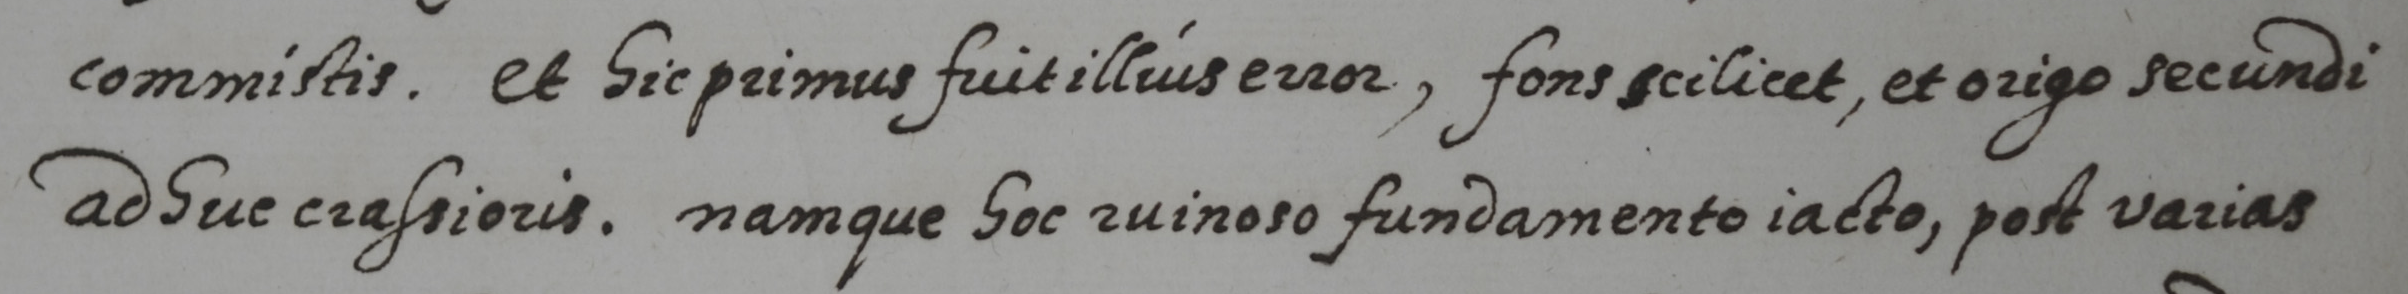 commistis. et hic primus fuit illíus error, fons scilicet, et origo secundi
adhuc crassioris. namque hoc ruinoso fundamento iacto, post varias